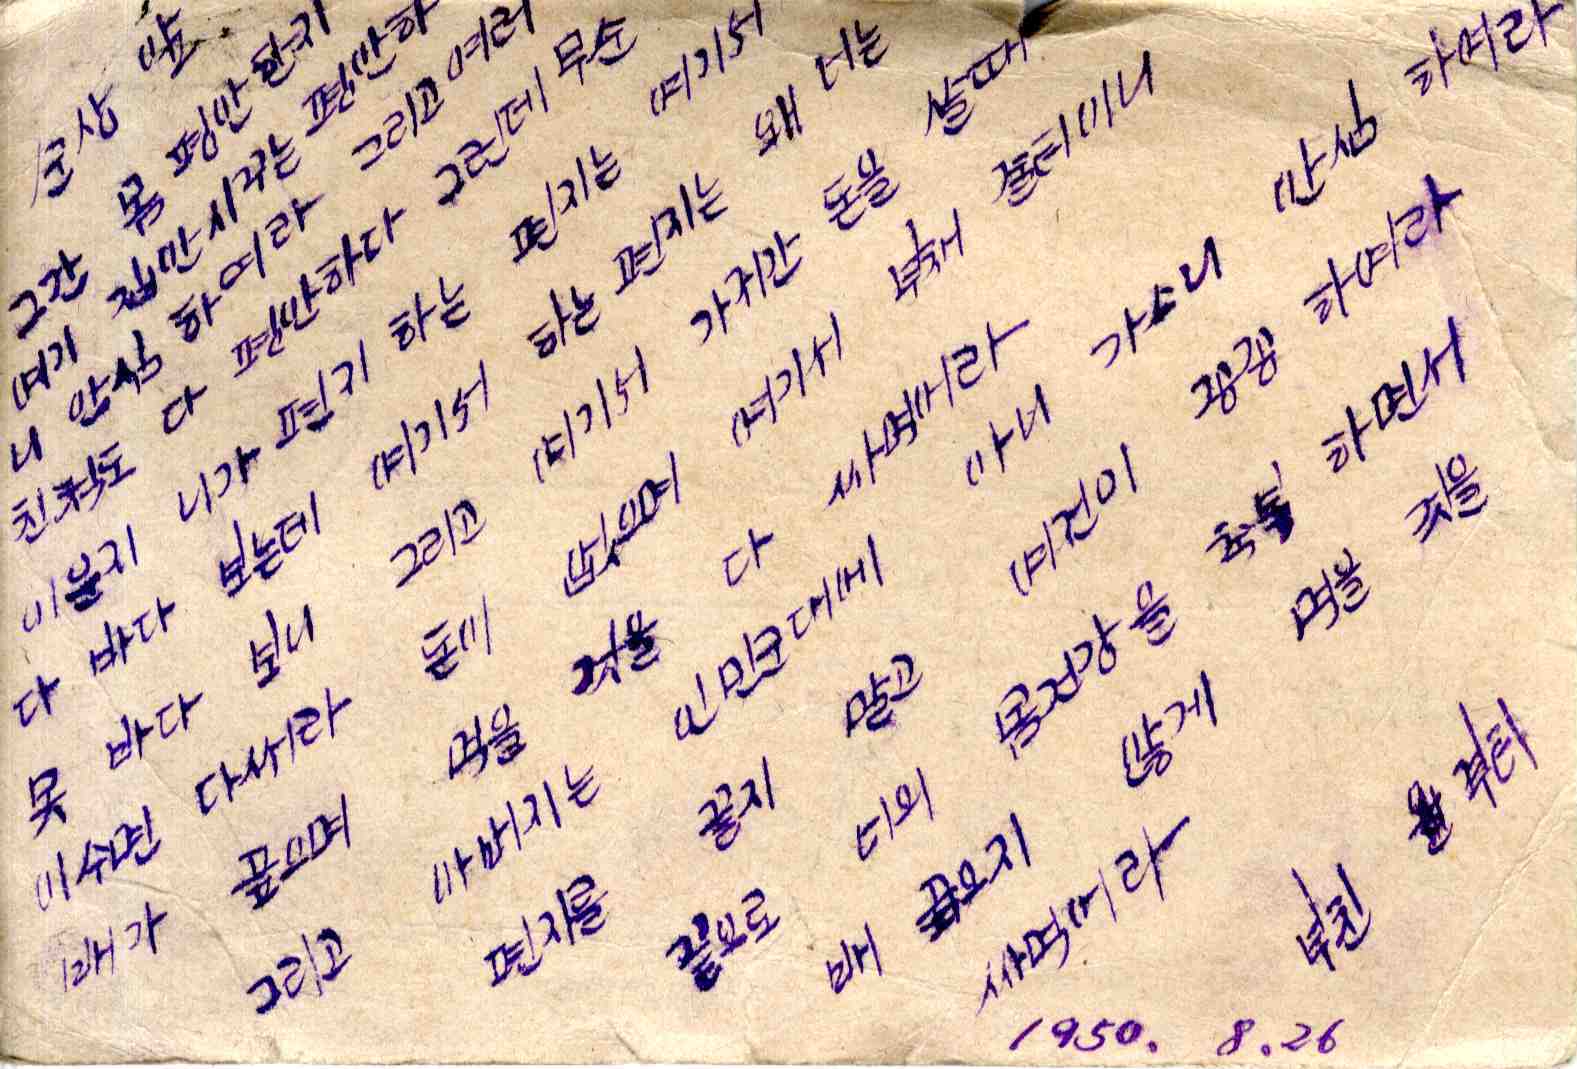 상 앞
그간 몸 평안한지
여기 집안 시구는 편안하
니 안심 하여라 그리고 여러
친척도 다 편안하다 그런데 무순
이윤지 니가 편지 하는 편지는 여기서
다 바다 보는데 여기서 하는 편지는 왜 너는
못 바다 보니 그리고 여기서 가저간 돈을 살때
이쓰면 다써라 돈이 업으며 여기서 부쳐 줄터이니
배가 곺으며 먹을 거을 다 싸먹어라
그리고 아버지는 인민군대에 아니 가스니 안심 하여라
편지를 끝지 말고 여전이 꽁꽁 하여라
끝으로 너외 몸건강을 축복 하면서
배 곺으지 않게 먹을 것을
싸먹어라
부친
1950. 8.26